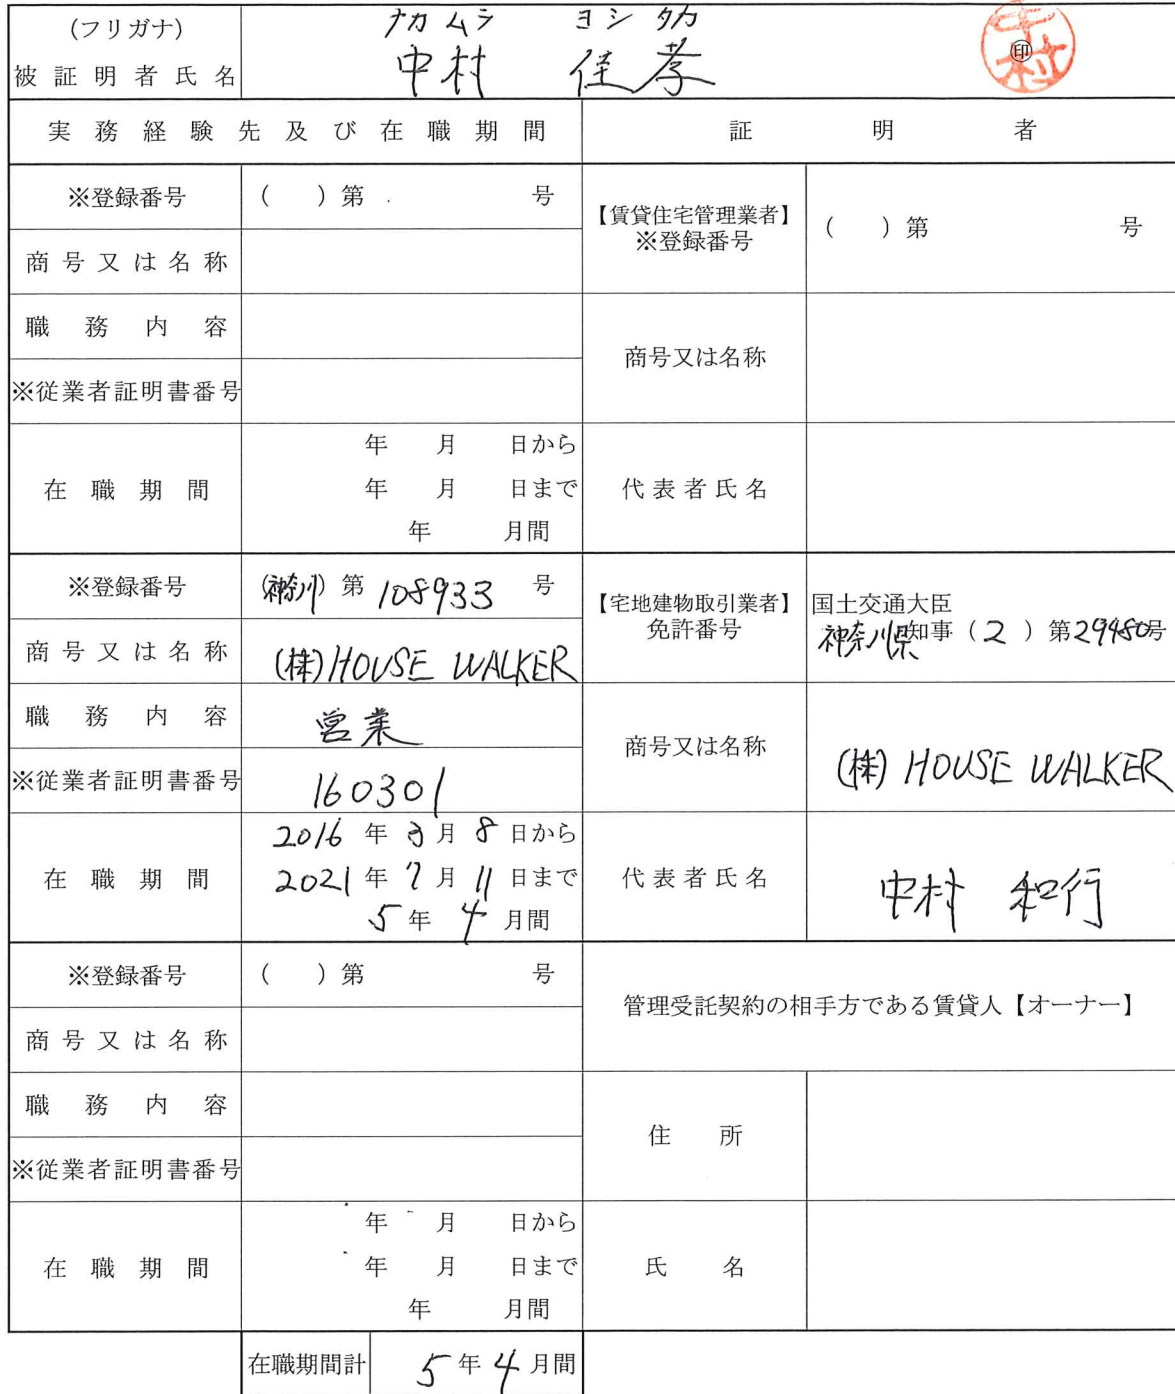 (フリガナ) ナカムラ ヨシタカ
被証明者氏名 中村 佳孝 ㊞ 中村
実務経験先及び在職期間 証明者
※登録番号 ( )第 号 【賃貸住宅管理業者】※登録番号 ( )第 号
商号又は名称
職務内容 商号又は名称
※従業者証明書番号
年 月 日から
在職期間 年 月 日まで 代表者氏名
年 月間
※登録番号 (神奈川)第 108933 号 【宅地建物取引業者】免許番号 国土交通大臣
神奈川県知事(2)第29480号
商号又は名称 (株)HOUSE WALKER
職務内容 営業 商号又は名称 (株)HOUSE WALKER
※従業者証明書番号 160301
2016年3月8日から
在職期間 2021年7月11日まで 代表者氏名 中村 和行
5年4月間
※登録番号 ( )第 号 管理受託契約の相手方である賃貸人【オーナー】
商号又は名称
職務内容 住所
※従業者証明書番号
年 月 日から
在職期間 年 月 日まで 氏名
年 月間
在職期間計 5年4月間